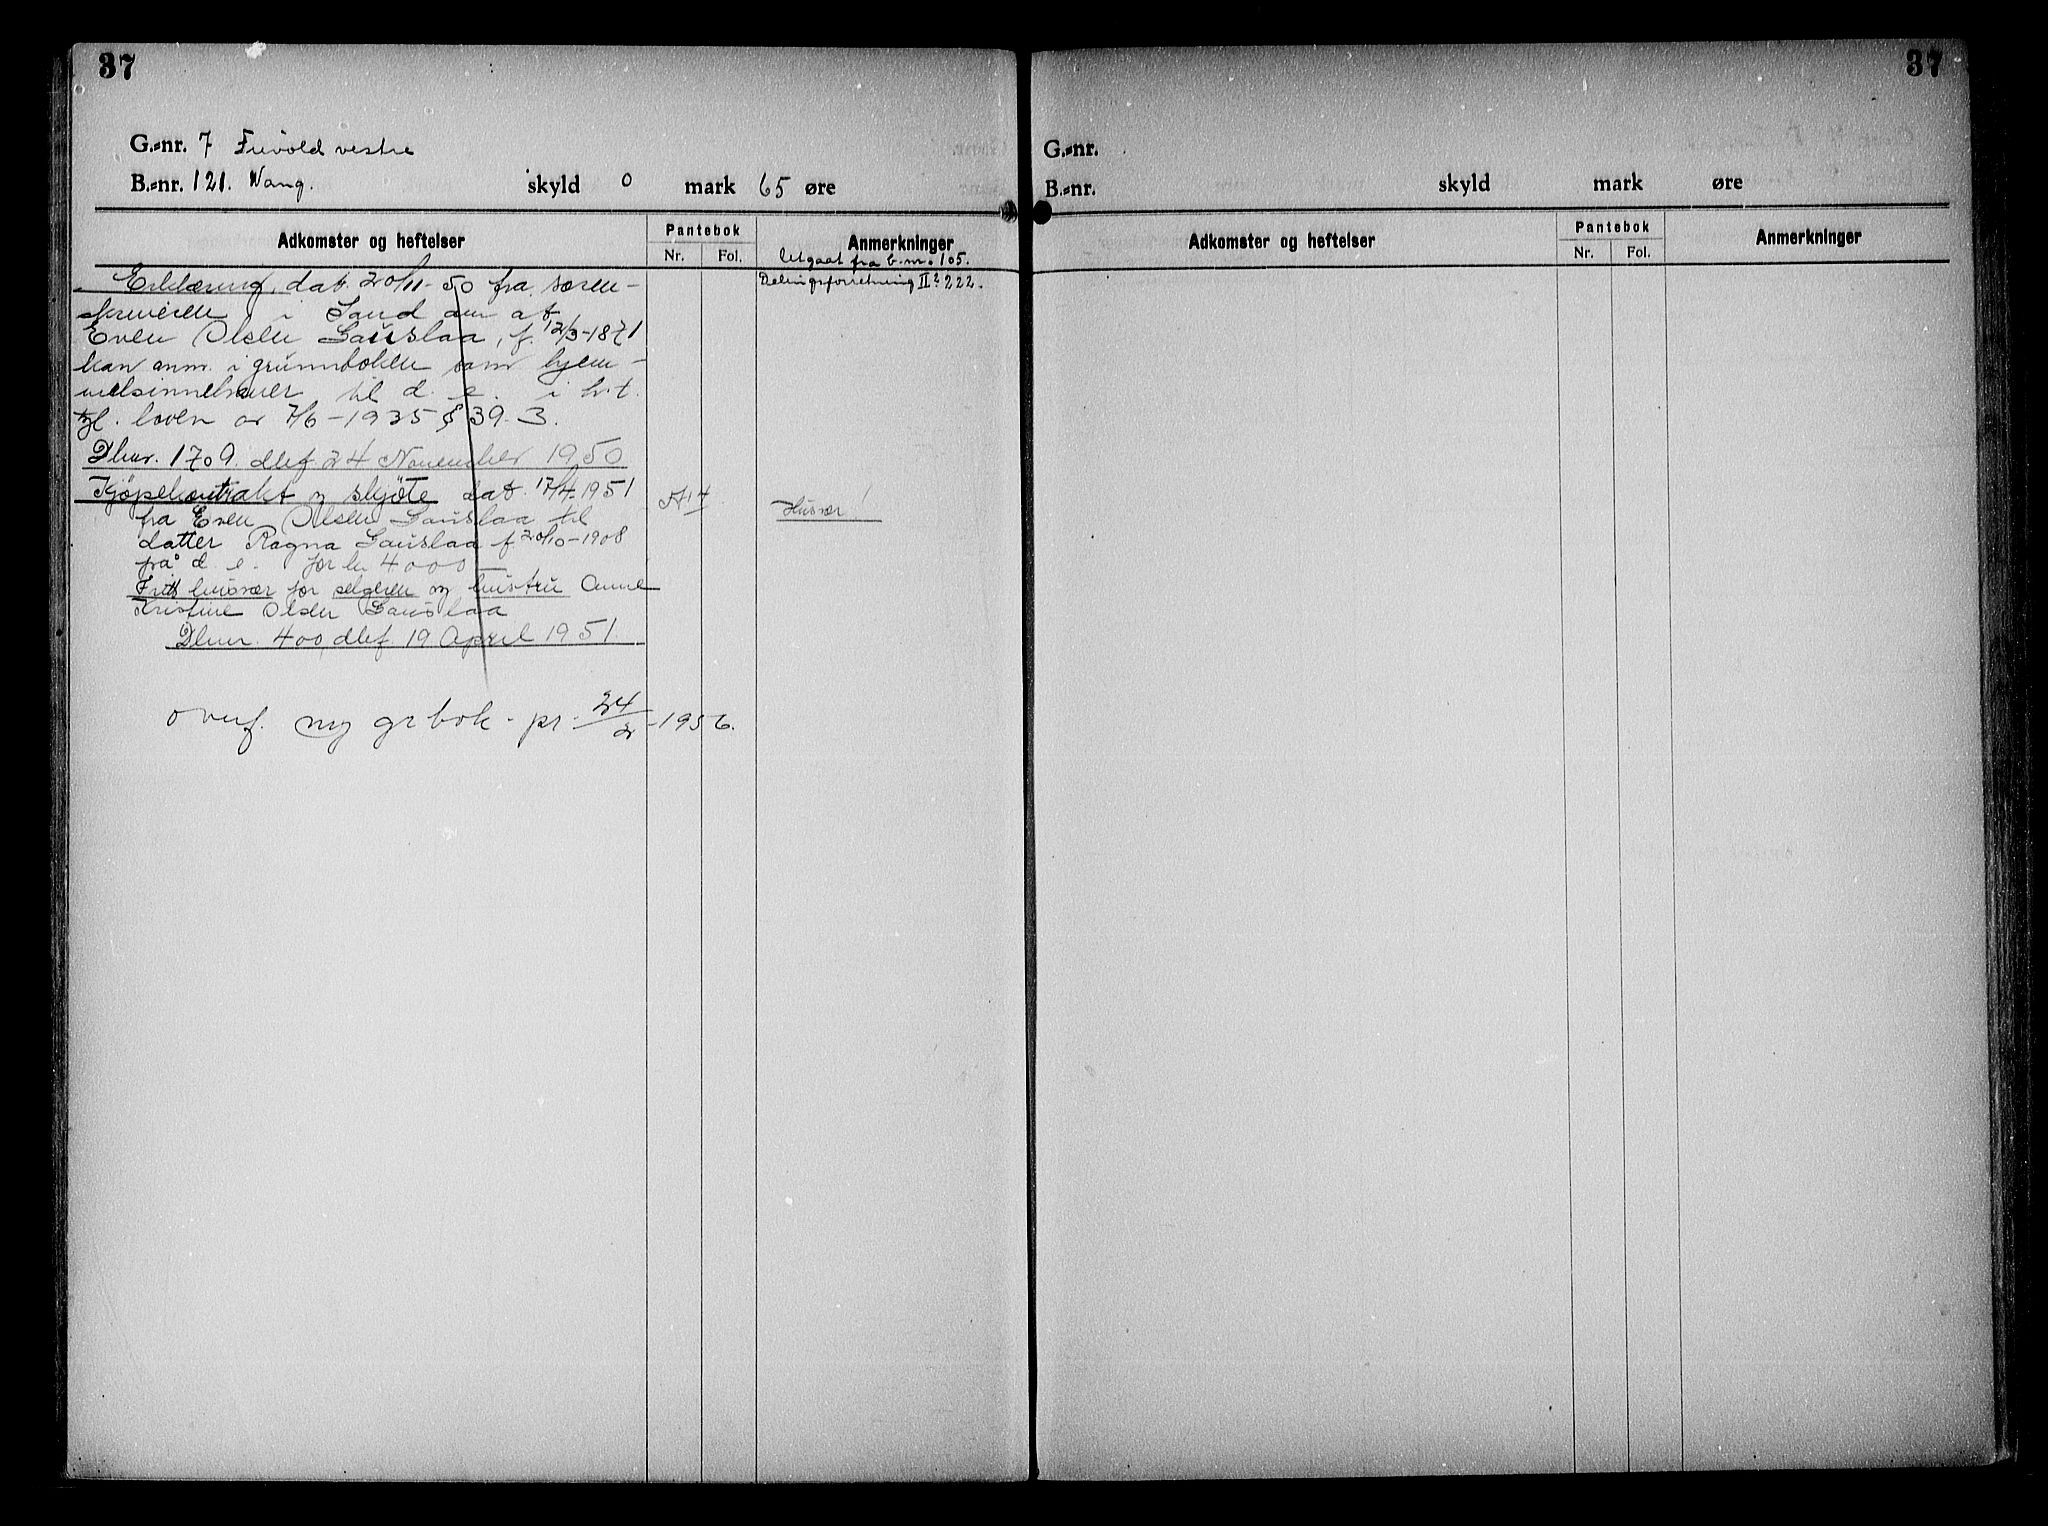 37
G.-nr. 7 Frivold vestre
B.-nr. 121. Vang. skyld 0 mark 65 øre
Adkomster og heftelser
Pantebok
Nr. Fol.
Anmerkninger
Utgaat fra b.nr. 105.
Delingsforretning II b 222.
Erklæring, dat. 20/11-50 fra soren-
skriveren i Sand om at
Even Olsen Gauslaa, f. 12/3-1871
kan anm. i grunnboken som hjem-
melsinnehaver til d. e. i h.t.
tgl. loven av 7/6-1935 § 39. 3.
Dbnr. 1709. dbf. 24 November 1950
Kjøpekontrakt og skjøte dat. 17/4-1951
fra Even Olsen Gauslaa til
datter Ragna Gauslaa f 20/10-1908
på d. e. for kr 4000
Fritt husvær for selgeren og hustru Anne
Kristine Olsen Gauslaa
Dbnr. 400, dbf. 19 April 1951.
A 14
Husvær!
overf. ny grbok. pr. 24/2-1956.
37
G.-nr.
B.-nr. skyld mark øre
Adkomster og heftelser
Pantebok
Nr. Fol.
Anmerkninger